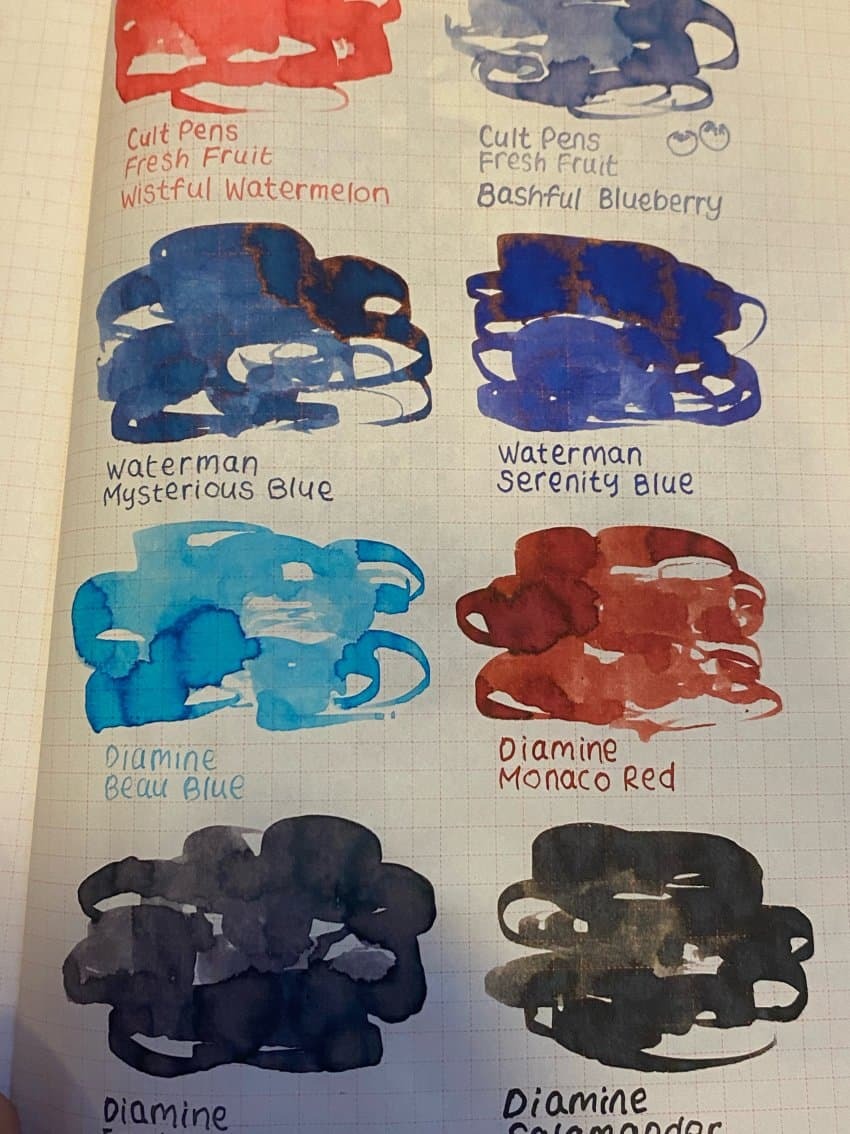 Cult Pens
Fresh Fruit
Wistful Watermelon
Cult Pens
Fresh Fruit
Bashful Blueberry
Waterman
Mysterious Blue
Waterman
Serenity Blue
Diamine
Beau Blue
Diamine
Monaco Red
Diamine
Diamine
Salamander